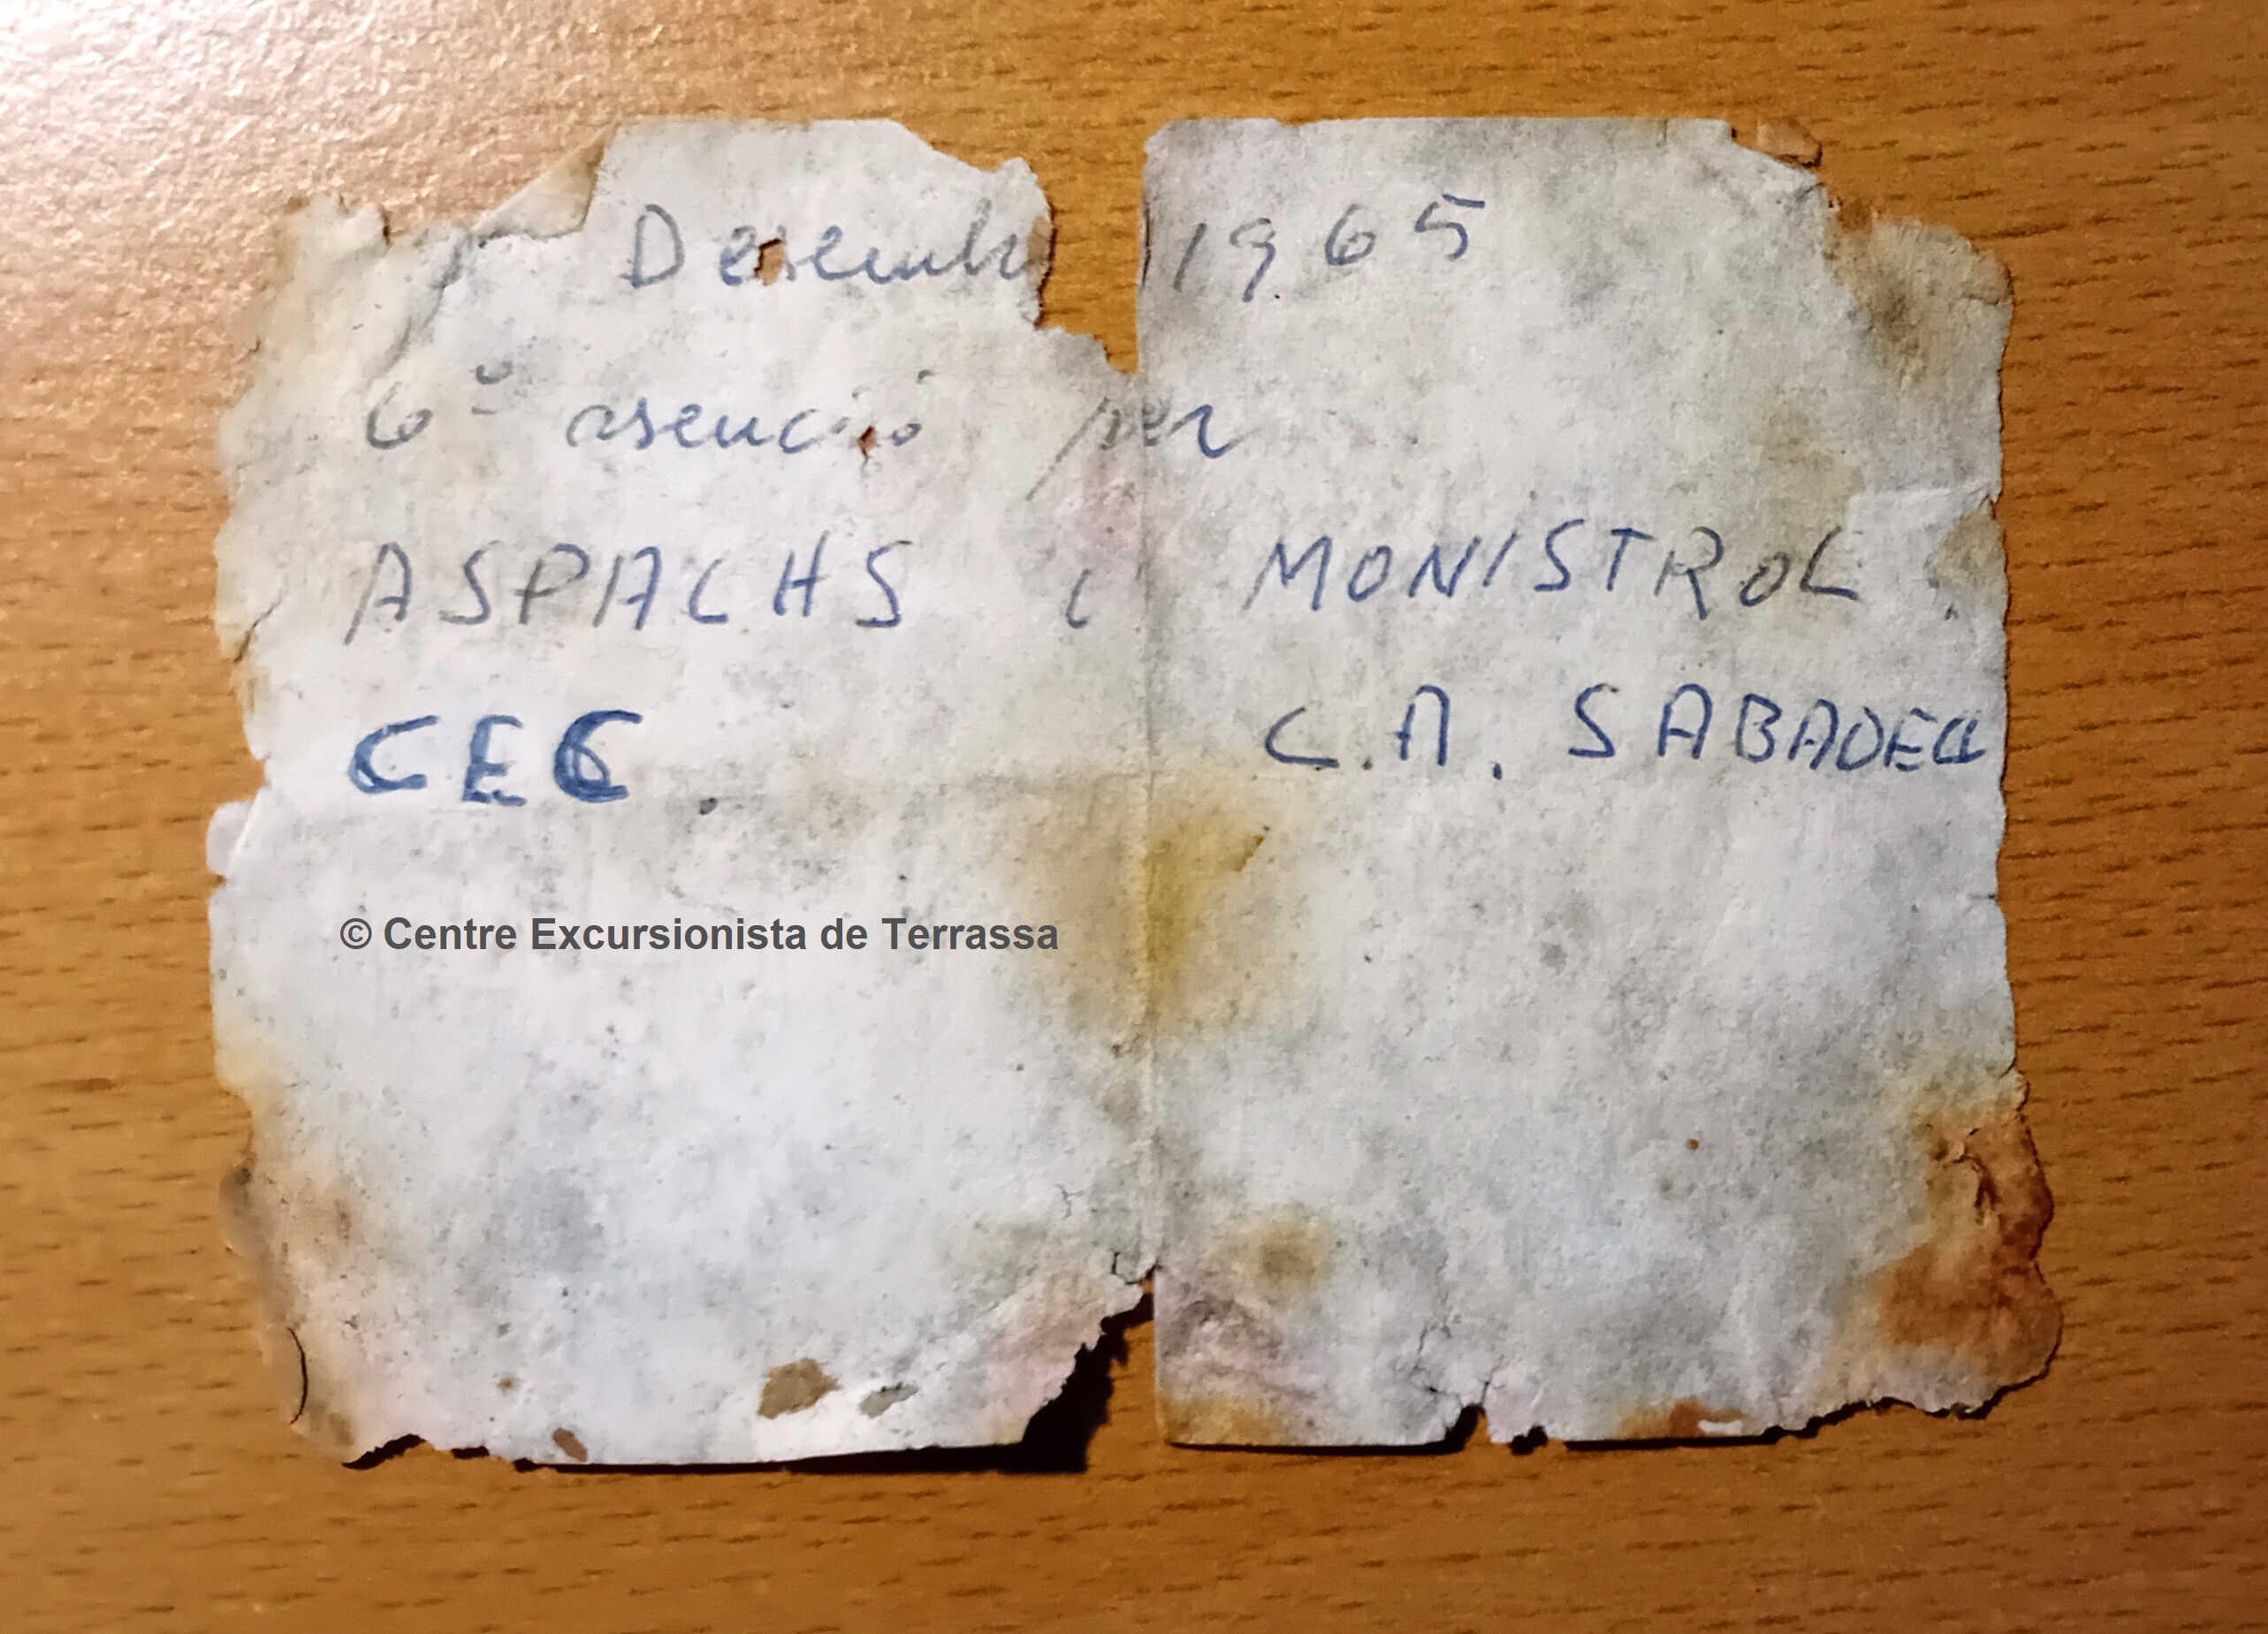 Desembr 1965
6ª asenció per
ASPACHS i MONISTROL.
CEC. C.A. SABADELL
© Centre Excursionista de Terrassa